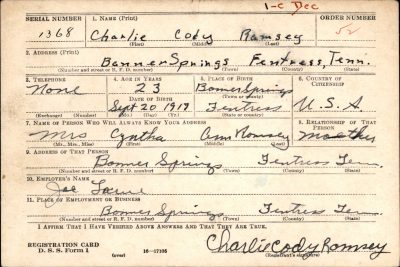 1-C Dec
SERIAL NUMBER 1. NAME (Print) ORDER NUMBER
1368 Charlie Cody Ramsey 52
(First) (Middle) (Last)
2. ADDRESS (Print)
Banner Springs Fentress, Tenn.
(Number and street or R. F. D. number) (Town) (County) (State)
3. TELEPHONE 4. AGE IN YEARS 5. PLACE OF BIRTH 6. COUNTRY OF CITIZENSHIP
None 23 Banner Springs
DATE OF BIRTH (Town or county)
Sept 20 1919 Fentress U.S.A.
(Exchange) (Number) (Mo.) (Day) (Yr.) (State or country)
7. NAME OF PERSON WHO WILL ALWAYS KNOW YOUR ADDRESS 8. RELATIONSHIP OF THAT PERSON
Mrs Cyntha Ann Ramsey Mother
(Mr., Mrs., Miss) (First) (Middle) (Last)
9. ADDRESS OF THAT PERSON
Banner Springs Fentress Tenn
(Number and street or R. F. D. number) (Town) (County) (State)
10. EMPLOYER'S NAME
Joe
11. PLACE OF EMPLOYMENT OR BUSINESS
Banner Springs Fentress Tenn
(Number and street or R. F. D. number) (Town) (County) (State)
I AFFIRM THAT I HAVE VERIFIED ABOVE ANSWERS AND THAT THEY ARE TRUE.
REGISTRATION CARD
D. S. S. Form 1 (over) 16—17105 Charlie Cody Ramsey
(Registrant's signature)